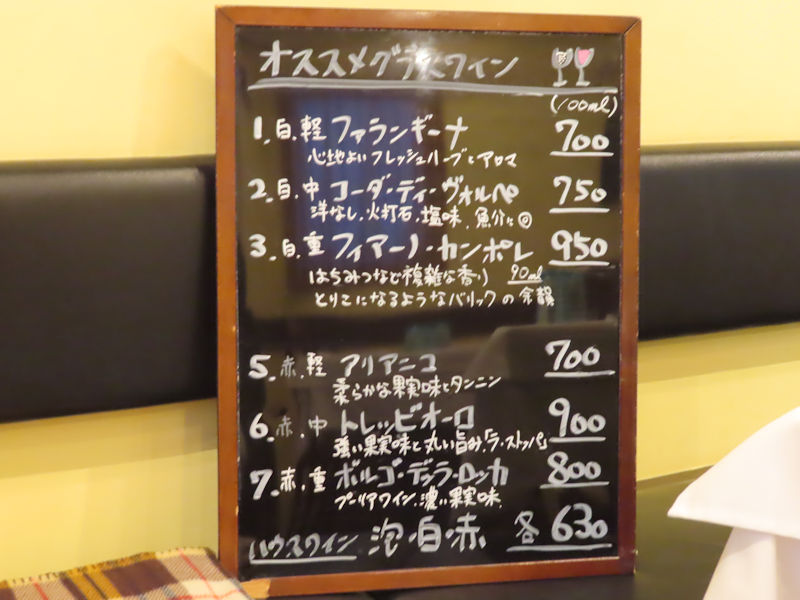 オススメグラスワイン
(100ml)
1. 白. 軽 ファランギーナ 700
心地よいフレッシュハーブとアロマ
2. 白. 中 コーダ・ディ・ヴォルペ 750
洋なし. 火打石. 塩味. 魚介に◎
3. 白. 重 フィアーノ・カンポレ 950
はちみつなど複雑な香り 90ml
とりこになるようなバリックの余韻
5. 赤. 軽 アリアニコ 700
柔らかな果実味とタンニン
6. 赤. 中 トレッビオーロ 900
強い果実味と丸い旨み.「ラ・ストッパ」
7. 赤. 重 ボルゴ・デッラ・ロッカ 800
プーリアワイン. 濃い果実味.
ハウスワイン 泡・白・赤 各630